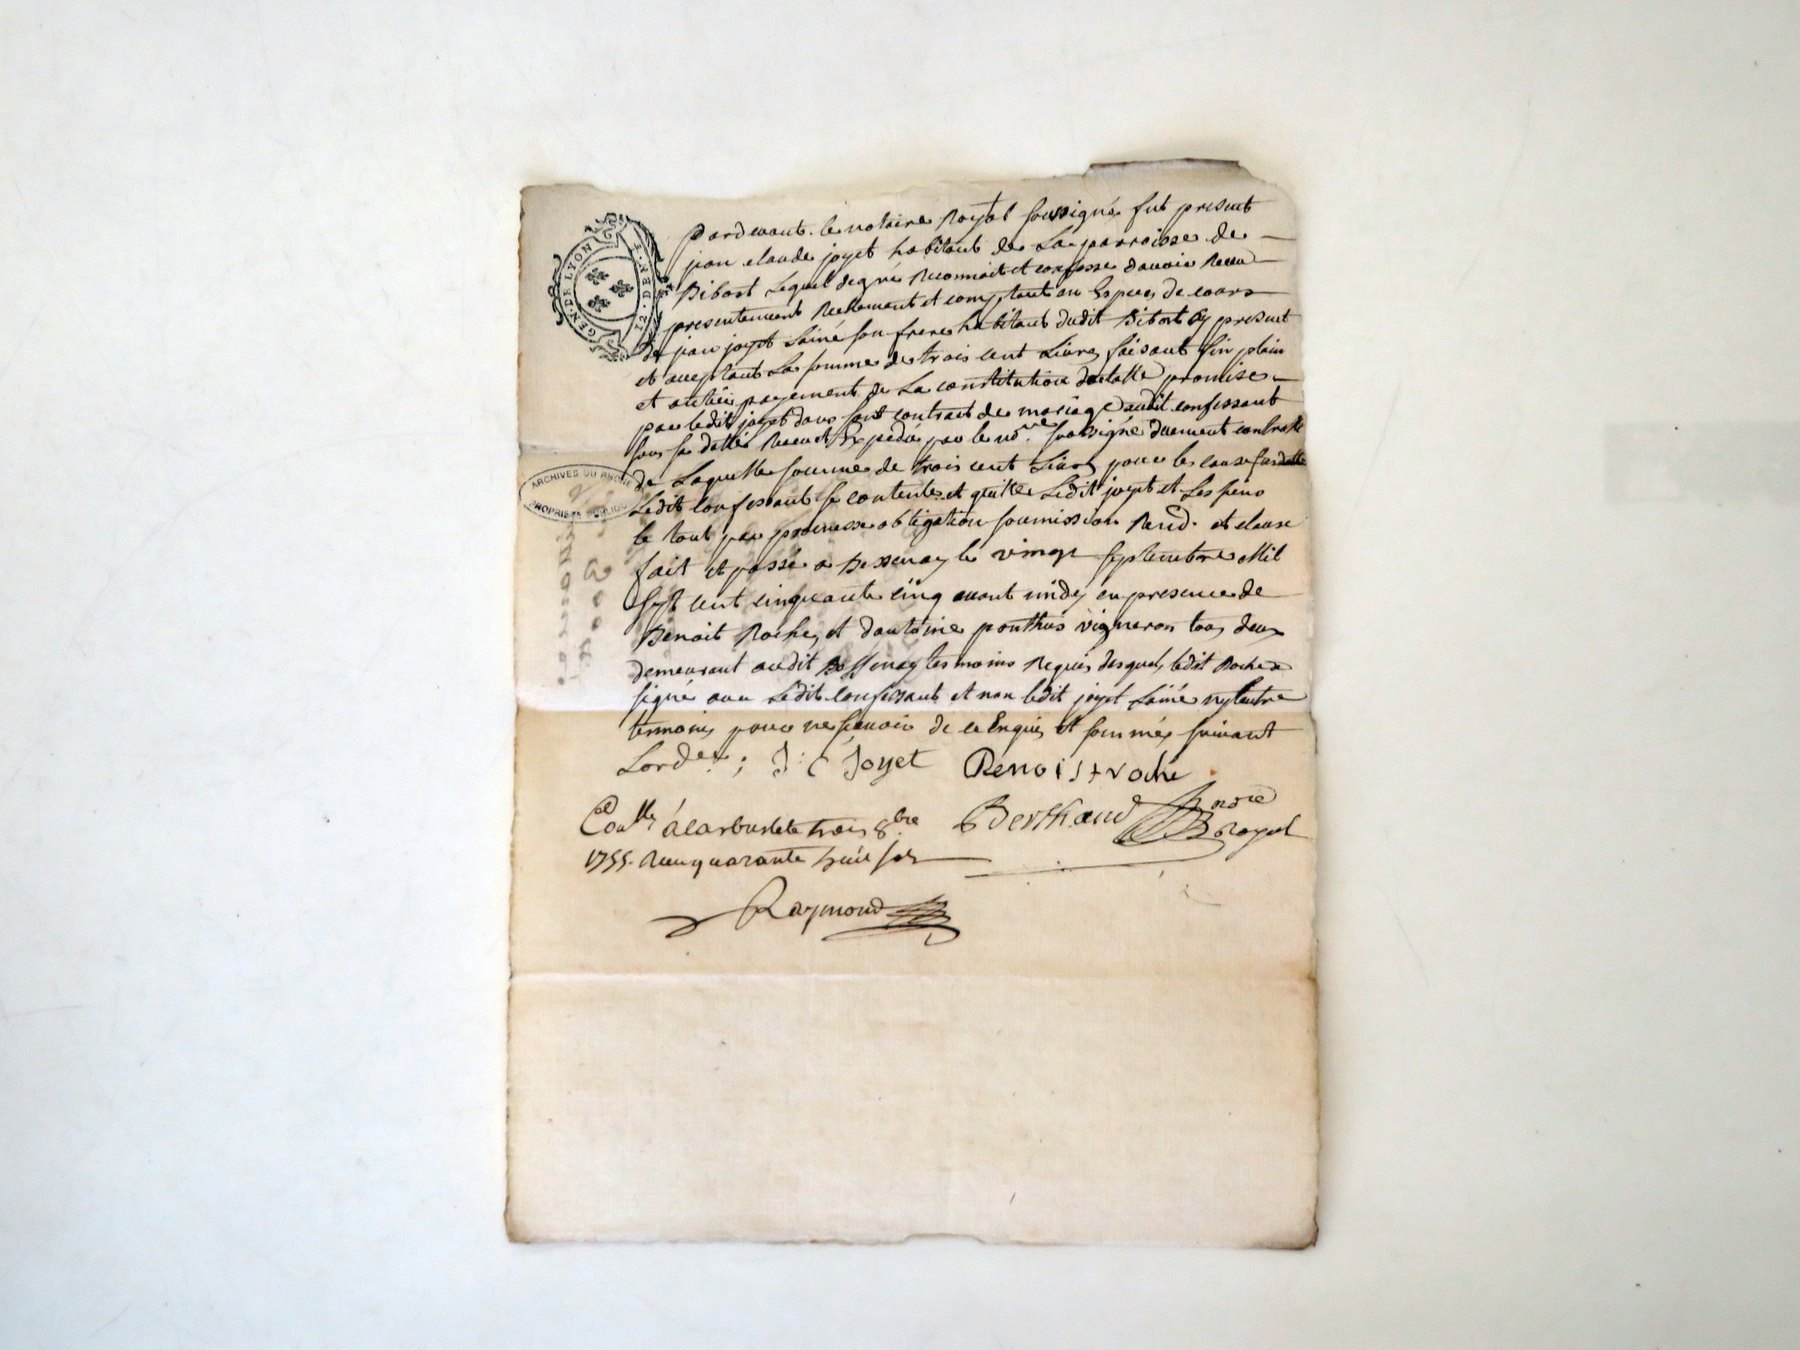 GEN. DE LYON
pardevant le notaire Royal soussigné fut present
jean claude joyet habitant de La parroisse de
Bibost Lequel de gré Reconnoit et confesse davoir Receu
presentement Reellement et comptant en Especes de cours
de jean joyet Lainé son frere habitant dudit Bibost Cy present
et acceptant La somme de trois cent Livres faisant fin plain
et entier payement de La constitution dotalle promise
par ledit joyet dans sont contract de mariage audit confessant
sous sa datte Receu et Expedié par le no.re soussigné duement controllé
de Laquelle somme de trois cent Livres pour les cause susditte
Ledit confessant se contente et quitte Ledit joyet et Les siens
le tout par promesse obligation soumission Renon. et clause
fait et passé a Bessenay le vingt septembre Mil
sept cent cinquante cinq avant midy en presence de
Benoit Roche et dantoine ponthus vigneron tous deux
demeurant audit Bessenay tesmoins Requis desquels ledit Roche a
signé avec Ledit confessant et non ledit joyet Lainé ny lautre
tesmoins pour ne scavoir de ce Enquis et sommés suivant
Lord.ce ; J: C Joyet Benoist roche
Con.llé à larbresle le trois 8.bre Berthaud no.re Royal
1755. Receu quarante huit sols
Raymond
ARCHIVES DU RHONE
PROPRIETE PUBLIQUE